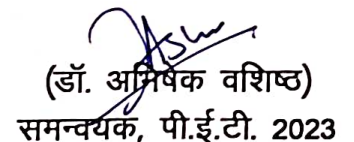 (डॉ. अभिषेक वशिष्ठ)
समन्वयक, पी.ई.टी. 2023